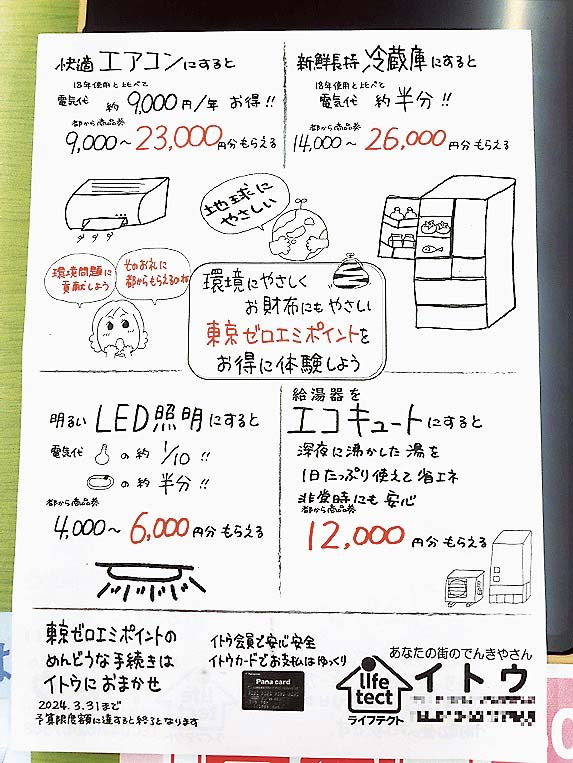 快適エアコンにすると
18年使用と比べて
電気代 約9,000円/年 お得!!
都から商品券
9,000~23,000円分もらえる
新鮮長持 冷蔵庫にすると
18年使用と比べて
電気代 約半分!!
都から商品券
14,000~26,000円分もらえる
地球に
やさしい
環境問題に
貢献しよう
そのお礼に
都からもらえるのね
環境にやさしく
お財布にもやさしい
東京ゼロエミポイントを
お得に体験しよう
明るいLED照明にすると
電気代 の約1/10!!
の約半分!!
都から商品券
4,000~6,000円分もらえる
給湯器を
エコキュートにすると
深夜に沸かした湯を
1日たっぷり使えて省エネ
非常時にも安心
都から商品券
12,000円分もらえる
東京ゼロエミポイントの
めんどうな手続きは
イトウにおまかせ
2024.3.31まで
予算限度額に達すると終了となります
イトウ会員で安心安全
イトウカードでお支払はゆっくり
Pana card
life
tect
ライフテクト
あなたの街のでんきやさん
イトウ